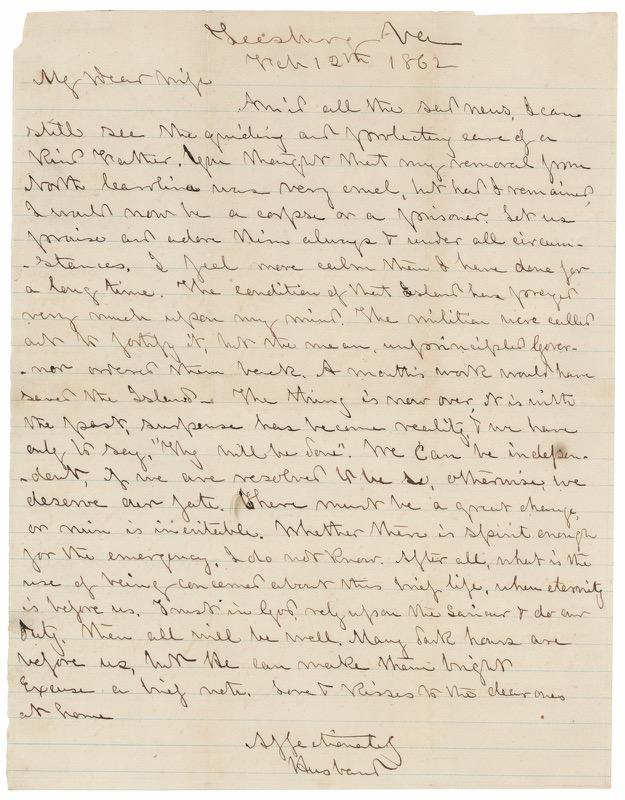 Leesburg Va
Feb 12th 1862
My Dear Wife
Amid all the sad news, I can
still see the guiding and protecting care of a
Kind Father. You thought that my removal from
North Carolina was very cruel, but had I remained,
I would now be a corpse or a prisoner. Let us
praise and adore Him always & under all circum-
-stances. I feel more calm than I have done for
a long time. The condition of that Island has preyed
very much upon my mind. The militia were called
out to fortify it, but the mean, unprincipled Gover-
-nor ordered them back. A month's work would have
saved the Island. The thing is now over, it is with
the past, suspense has become reality, & we have
only to say, "Thy will be done". We can be indepen-
-dent, if we are resolved to be so, otherwise, we
deserve our fate. There must be a great change,
or ruin is inevitable. Whether there is spirit enough
for the emergency, I do not know. After all, what is the
use of being concerned about this brief life, when eternity
is before us. Trust in God, rely upon the Saviour & do our
duty, then all will be well. Many dark hours are
before us, but He can make them bright
Excuse a brief note. Love & Kisses to the dear ones
at home
Affectionately
Husband